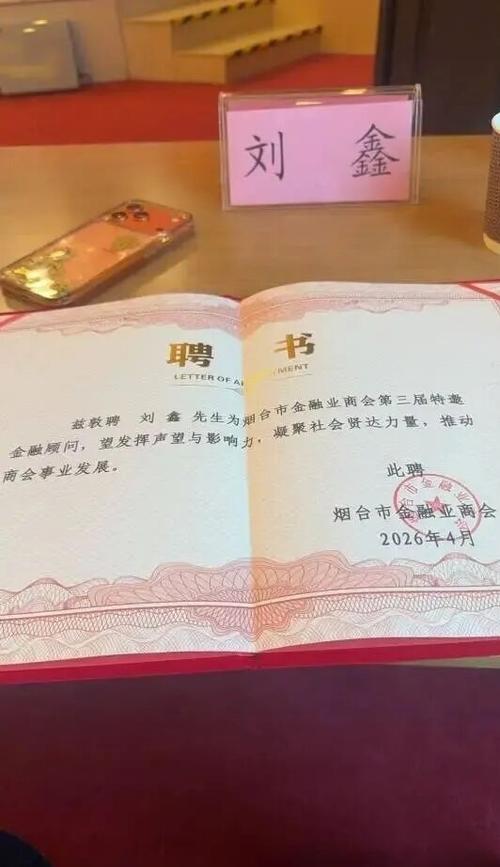 刘 鑫
聘 书
LETTER OF AP MENT
兹敦聘 刘鑫 先生为烟台市金融业商会第三届特邀
金融顾问，望发挥声望与影响力，凝聚社会贤达力量，推动
商会事业发展。
此聘
烟台市金融业商会
2026年4月